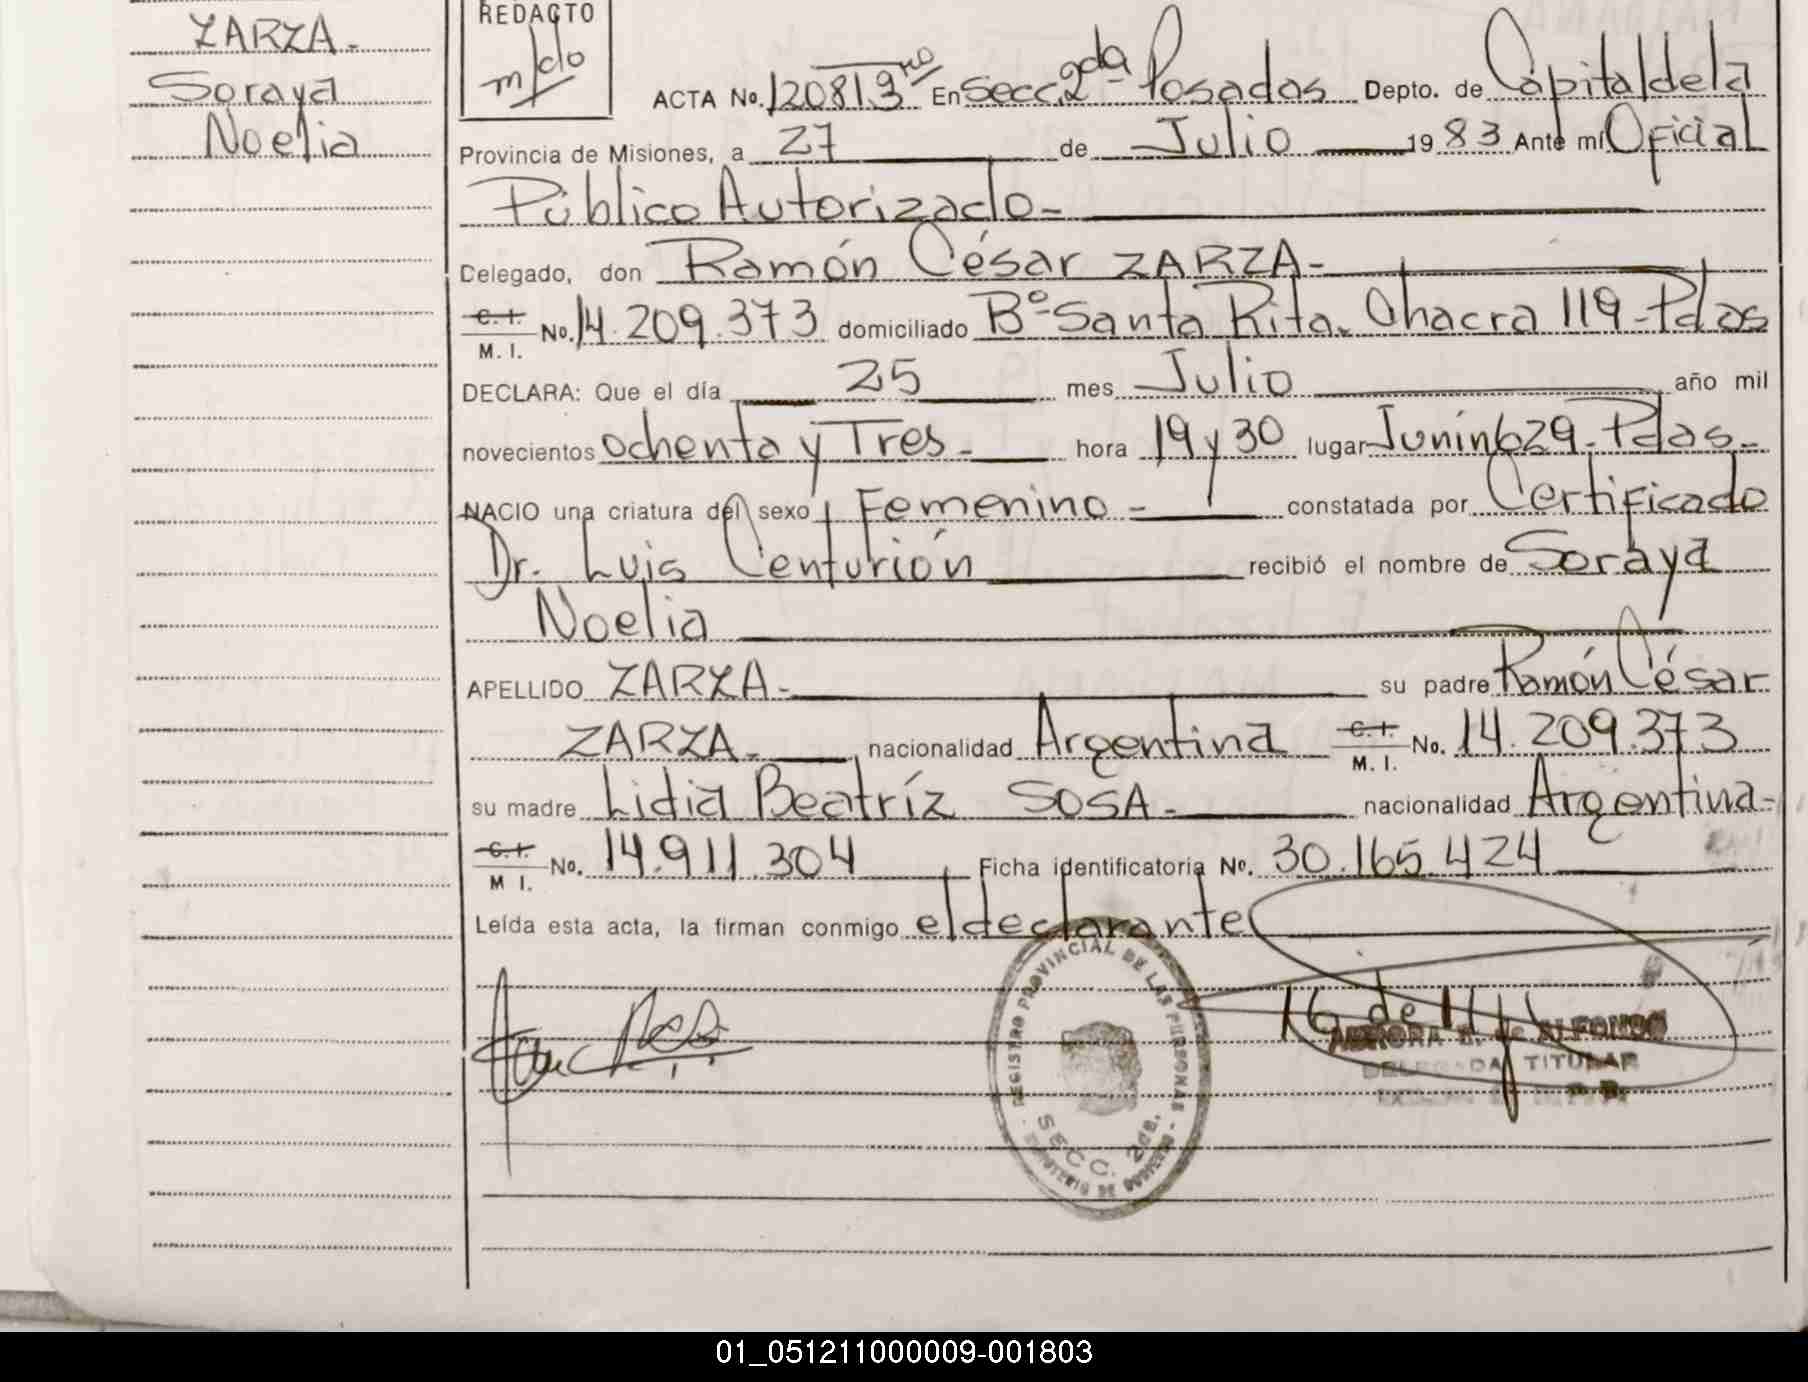 ZARZA-
Soraya
Noelia
REDACTO
ACTA No. 120813ro En Secc. 2da Posadas Depto. de Capital de la
Provincia de Misiones, a 27 de Julio 1983 Ante mí Oficial
Público Autorizado-
Delegado, don Ramón César ZARZA-
C.I. M.I. No. 14.209.373 domiciliado Bº Santa Rita. Chacra 119-Pdas
DECLARA: Que el día 25 mes Julio año mil
novecientos ochenta y Tres- hora 19 y 30 lugar Junín 629-Pdas-
NACIO una criatura del sexo Femenino- constatada por Certificado
Dr. Luis Centurión recibió el nombre de Soraya
Noelia
APELLIDO ZARZA- su padre Ramón César
ZARZA- nacionalidad Argentina C.I. M.I. No. 14.209.373
su madre Lidia Beatríz SOSA- nacionalidad Argentina-
C.I. M I. No. 14.911.304 Ficha identificatoria No. 30.165.424
Leída esta acta, la firman conmigo el declarante
REGISTRO PROVINCIAL DE LAS PERSONAS - MINISTERIO DE GOBIERNO -
SECC. 2da.
de ALFONSO
DELEGADA TITULAR
01_051211000009-001803